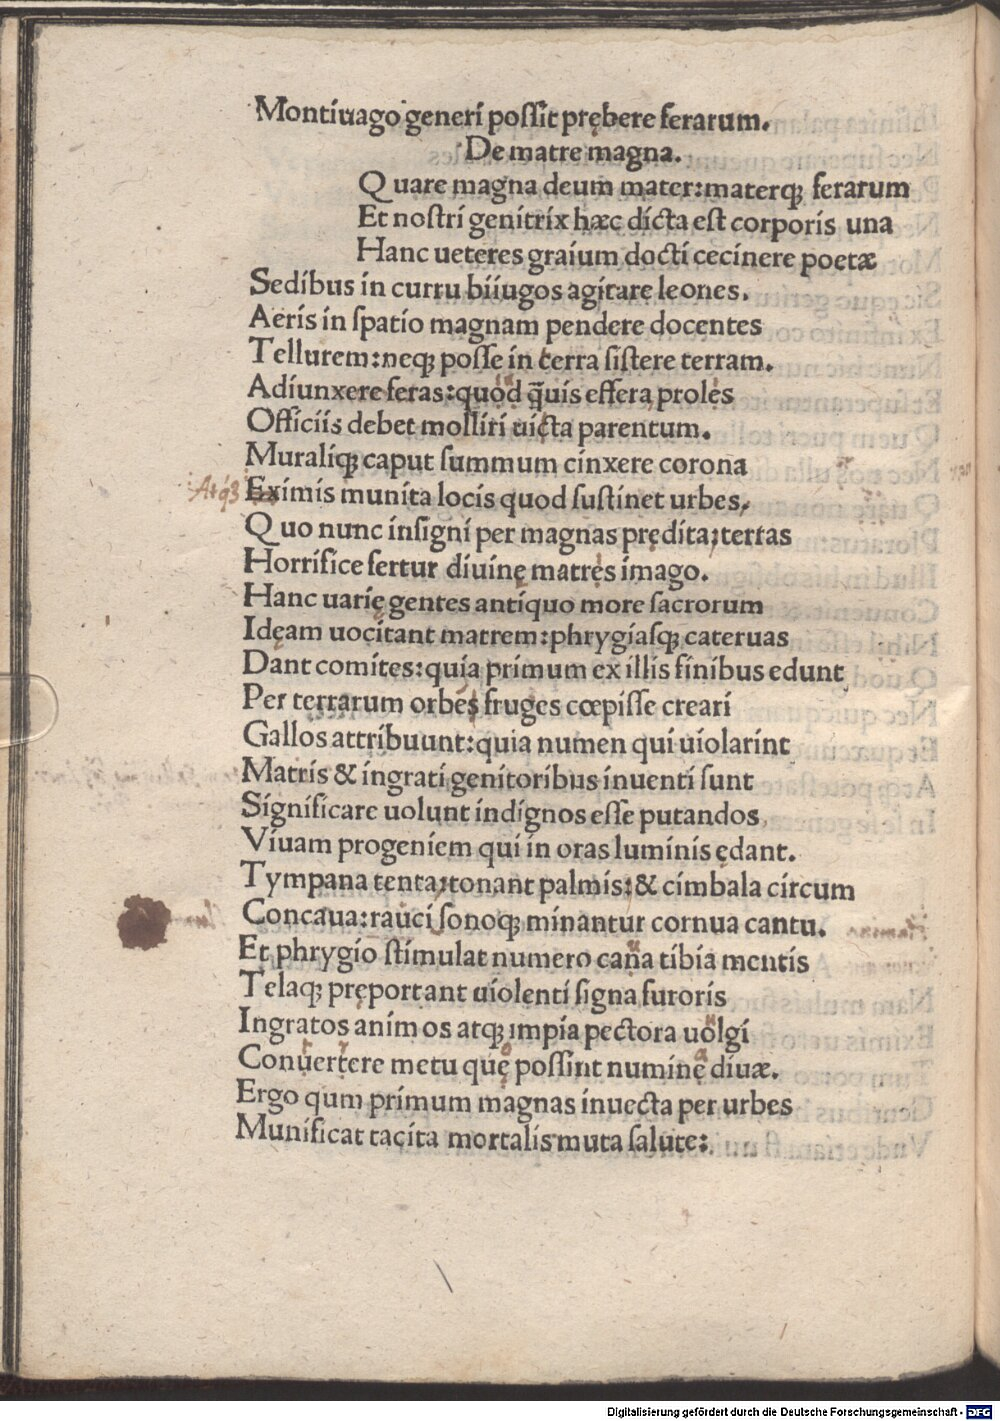 Montiuago generi poſſit prębere ferarum.
De matre magna.
Quare magna deum mater: materqꝫ ferarum
Et noſtri genitrix hæc dicta eſt corporis una
Hanc ueteres graium docti cecinere poetæ
Sedibus in curru biiugos agitare leones.
Aeris in ſpatio magnam pendere docentes
Tellurem: neqꝫ poſſe in terra ſiſtere terram.
Adiunxere feras: quod q̄uis effera proles
Officiis debet molliri uicta parentum.
Muraliqꝫ caput ſummum cinxere corona
Atqꝫ Eximis munita locis quod ſuſtinet urbes.
Quo nunc inſigni per magnas prędita; terras
Horrifice fertur diuinę matres imago.
Hanc uarię gentes antiquo more ſacrorum
Idęam uocitant matrem: phrygiaſqꝫ cateruas
Dant comites: quia primum ex illis finibus edunt
Per terrarum orbes fruges cœpiſſe creari
Gallos attribuunt: quia numen qui uiolarint
Matris & ingrati genitoribus inuenti ſunt
Significare uolunt indignos eſſe putandos
Viuam progeniem qui in oras luminis ędant.
Tympana tenta; tonant palmis: & cimbala circum
Concaua: rauci ſonoqꝫ minantur cornua cantu.
Et phrygio ſtimulat numero cana tibia mentis
Telaqꝫ pręportant uiolenti ſigna furoris
Ingratos animos atqꝫ impia pectora uolgi
Conuertere metu quę poſſint numine diuæ.
Ergo qum primum magnas inuecta per urbes
Munificat tacita mortalis muta ſalute:
Digitalisierung gefördert durch die Deutsche Forschungsgemeinschaft - DFG